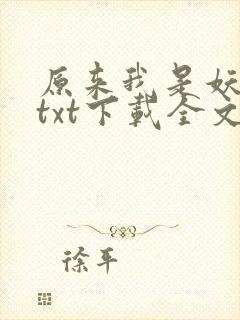 原来我是妖
txt下载全文
徐平